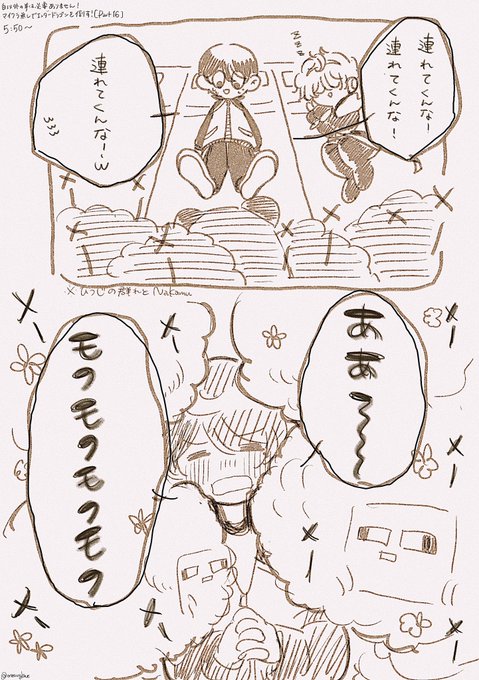 白は外の事は、必要ありません!
マイクラ無しでエンダードラゴンを倒す!【Part16】
5:50〜
連れてくんなー
連れてくんな!
zzz
連れてくんな〜w
メー
メー
メー
メー
※ひつじの群れとNakamu
ああ〜〜
モフモフモフモフ
メー
メー
メー
メー
メー
メー
メー